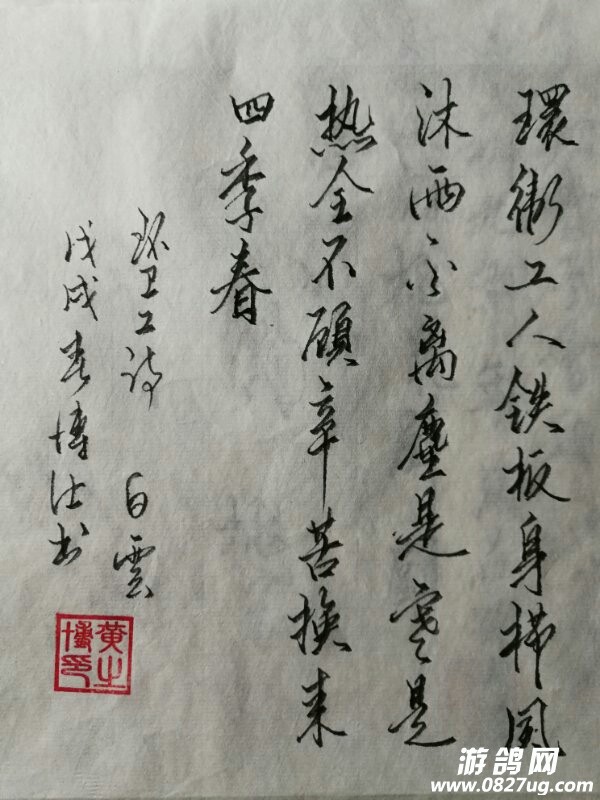 環衛工人鉄板身栉風
沐雨不离塵是寒是
热全不顧辛苦换来
四季春
环卫工诗 白雲
戊戌春博仕书
黄博之印
游鸽网
www.0827ug.com